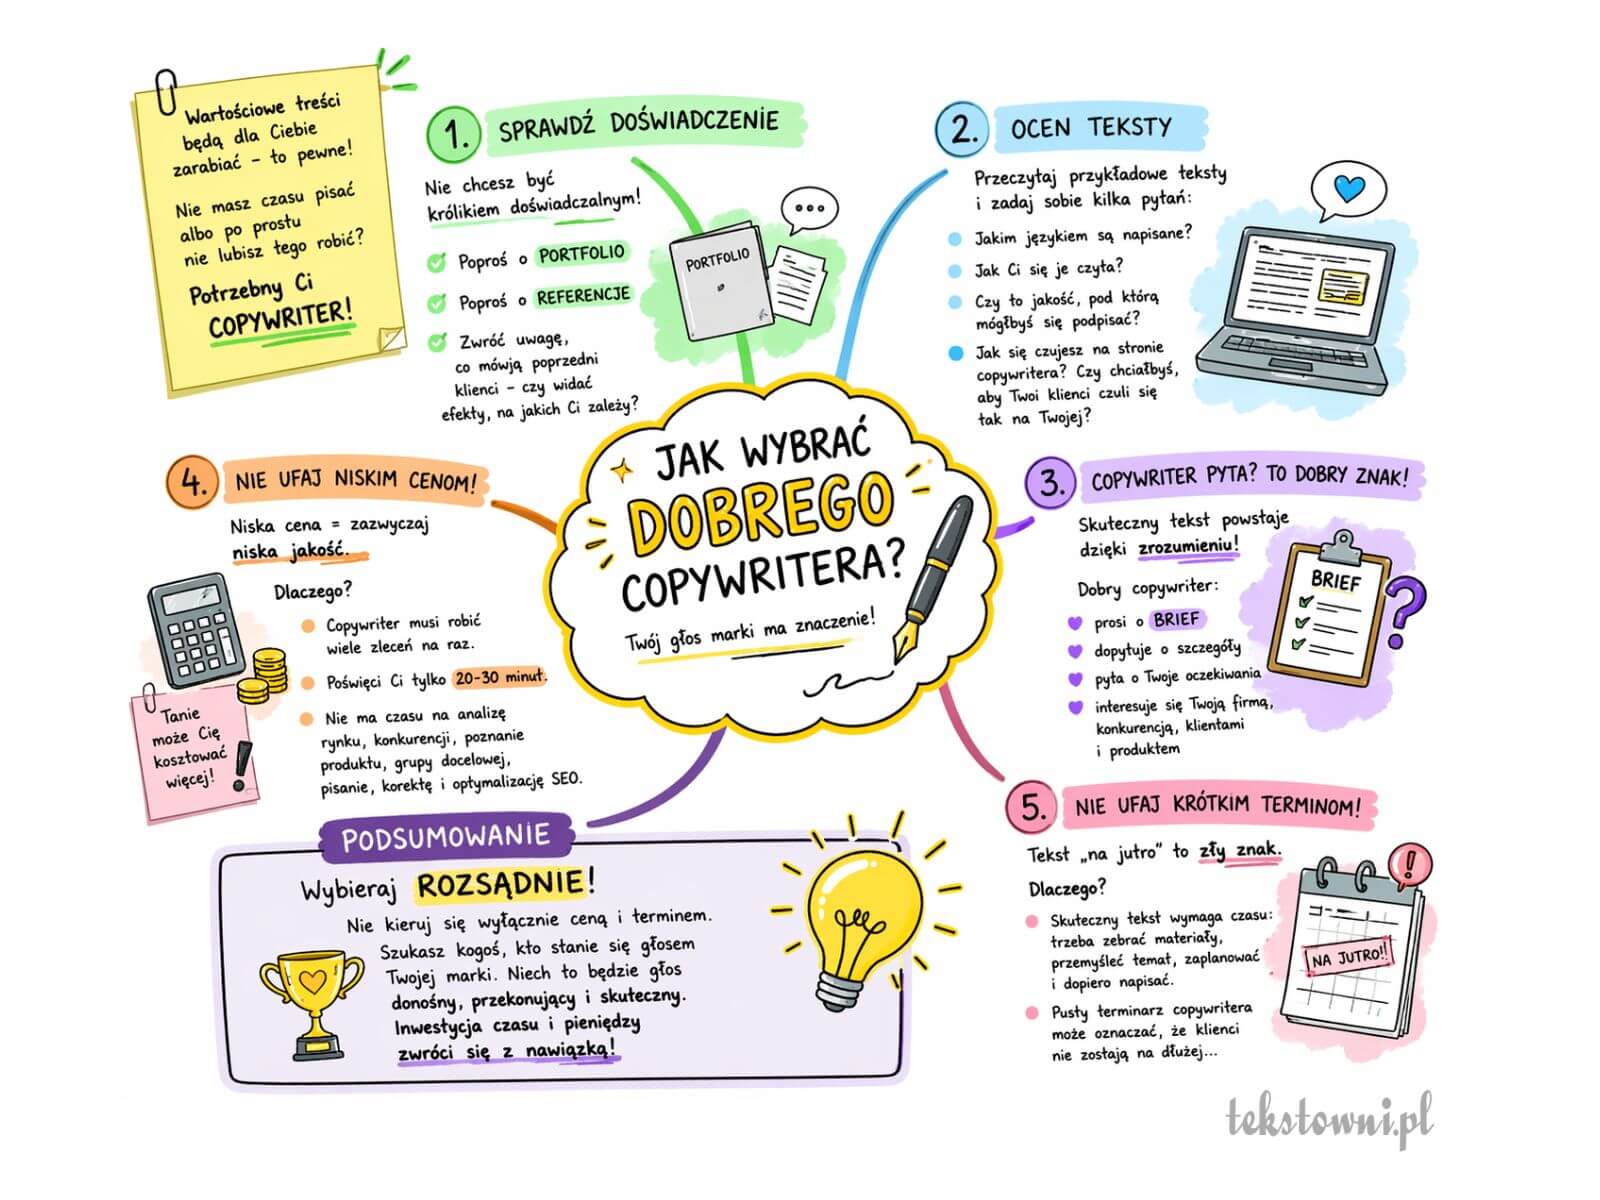 Wartościowe treści
będą dla Ciebie
zarabiać – to pewne!
Nie masz czasu pisać
albo po prostu
nie lubisz tego robić?
Potrzebny Ci
COPYWRITER!
1. SPRAWDŹ DOŚWIADCZENIE
Nie chcesz być
królikiem doświadczalnym!
Poproś o PORTFOLIO
Poproś o REFERENCJE
Zwróć uwagę,
co mówią poprzedni
klienci – czy widać
efekty, na jakich Ci zależy?
PORTFOLIO
2. OCEN TEKSTY
Przeczytaj przykładowe teksty
i zadaj sobie kilka pytań:
Jakim językiem są napisane?
Jak Ci się je czyta?
Czy to jakość, pod którą
mógłbyś się podpisać?
Jak się czujesz na stronie
copywritera? Czy chciałbyś,
aby Twoi klienci czuli się
tak na Twojej?
JAK WYBRAĆ
DOBREGO
COPYWRITERA?
Twój głos marki ma znaczenie!
3. COPYWRITER PYTA? TO DOBRY ZNAK!
Skuteczny tekst powstaje
dzięki zrozumieniu!
Dobry copywriter:
prosi o BRIEF
dopytuje o szczegóły
pyta o Twoje oczekiwania
interesuje się Twoją firmą,
konkurencją, klientami
i produktem
BRIEF
?
4. NIE UFAJ NISKIM CENOM!
Niska cena = zazwyczaj
niska jakość.
Dlaczego?
Copywriter musi robić
wiele zleceń na raz.
Poświęci Ci tylko 20-30 minut.
Nie ma czasu na analizę
rynku, konkurencji, poznanie
produktu, grupy docelowej,
pisanie, korektę i optymalizację SEO.
Tanie
może Cię
kosztować
więcej!
!
5. NIE UFAJ KRÓTKIM TERMINOM!
Tekst „na jutro” to zły znak.
Dlaczego?
Skuteczny tekst wymaga czasu:
trzeba zebrać materiały,
przemyśleć temat, zaplanować
i dopiero napisać.
Pusty terminarz copywritera
może oznaczać, że klienci
nie zostają na dłużej...
!
NA JUTRO!!
PODSUMOWANIE
Wybieraj ROZSĄDNIE!
Nie kieruj się wyłącznie ceną i terminem.
Szukasz kogoś, kto stanie się głosem
Twojej marki. Niech to będzie głos
donośny, przekonujący i skuteczny.
Inwestycja czasu i pieniędzy
zwróci się z nawiązką!
tekstowni.pl